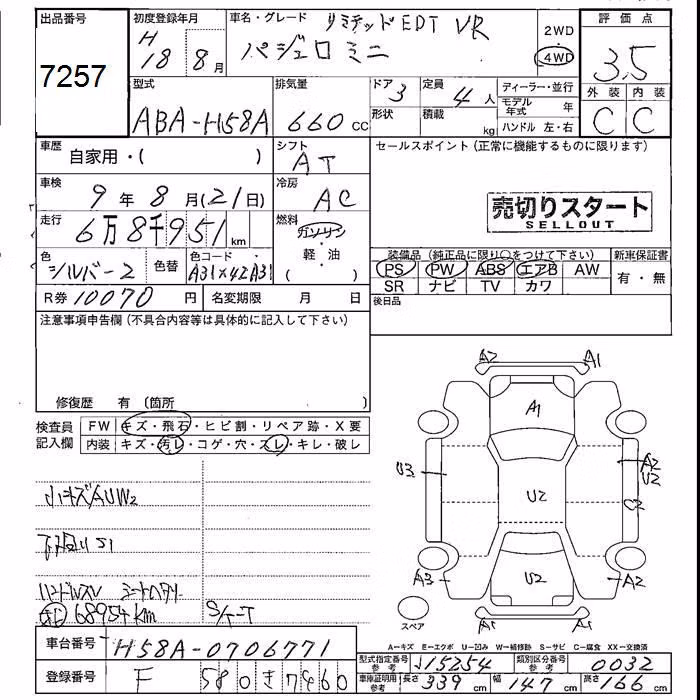 出品番号
7257
初度登録年月
H 18 8月
車名・グレード
リミテッド EDT VR
パジェロミニ
2WD
4WD
評価点
3.5
外装 内装
C C
型式
ABA-H58A
排気量
660 cc
ドア 3
形状
定員 4人
積載 kg
ディーラー・並行
モデル年式 年
ハンドル 左・右
車歴
自家用・( )
シフト
AT
セールスポイント(正常に機能するものに限ります)
車検
9年8月(21日)
冷房
AC
売切りスタート
SELLOUT
走行
6万8千951km
燃料
ガソリン
軽・油
( )
色
シルバー2
色替
色コード
A31×42A31
装備品(純正品に限り○をつけて下さい)
PS PW ABS エアB AW
SR ナビ TV カワ
新車保証書
有・無
R券 10070円
名変期限 月 日
後日品
注意事項申告欄(不具合内容等は具体的に記入して下さい)
修復歴 有(箇所 )
検査員記入欄
FW キズ・飛石・ヒビ割・リペア跡・X要
内装 キズ・汚レ・コゲ・穴・スレ・キレ・破レ
小キズAUW2
下回りS1
ハンドルスレ
68954km
S/T-T
A2 A1
A1
U3
U2
A2
U2
A3
U2
A2
A1 A1
スペア
A-キズ E-エクボ U-凹み W-補修跡 S-サビ C-腐食 XX-交換済
車台番号
H58A-0706771
登録番号
F 580 き 7960
型式指定番号 参考 15254
類別区分番号 参考 0032
車庫証明用 参考 長さ 339cm 幅 147cm 高さ 166cm